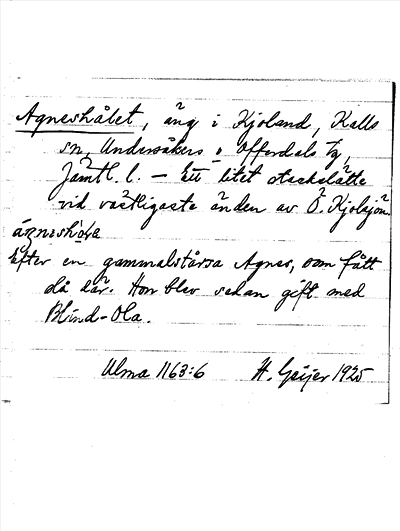 Agneshålet, äng i Kjoland, Kalls
sn, Undersåkers o. Offerdals tg,
Jämtl. l. – Ett litet stackslätte
vid västligaste änden av Ö. Kjolsjön
ágneshòła
Efter en gammalstårsa Agnes, som fått
då där. Hon blev sedan gift med
Blind-Ola.
Ulma 1163:6 H. Geijer 1925